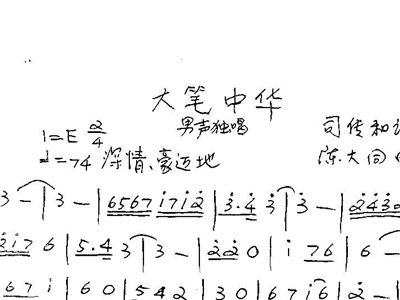 大笔中华
男声独唱
1=E 2/4
♩=74 深情、豪迈地
司传和
陈大同
3 - | 3 - | 6567 i̇7i̇2̇ | 3̇·4̇ 3̇ | 3̇ - | 2̇4̇3̇
2̇i̇76 | 5·4 3 | 3 - | 2̇2̇0 | i̇ 76 | 6 -
67i̇ | 60 | 542 | 30 | 67i̇6 | 2̇ -